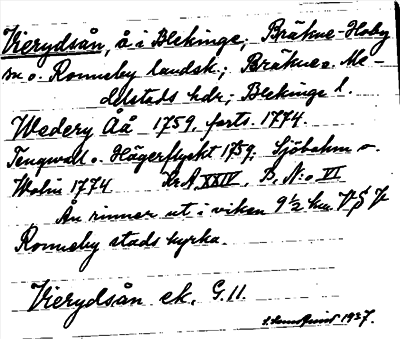 Vierydsån, å i Blekinge; Bräkne-Hoby
sn o. Ronneby landsk.; Bräkne o. Me-
delstads hdr; Blekinge l.
Wedery Åå 1759, forts. 1774.
Tengwall o. Hägerflycht 1759, Sjöbohm o
Wolin 1774 Kr. A. XXIV, B, N:o VI
Ån rinner ut i viken 9½ km V.S.V
Ronneby stads kyrka.
Vierydsån ek. G.11.
1937.